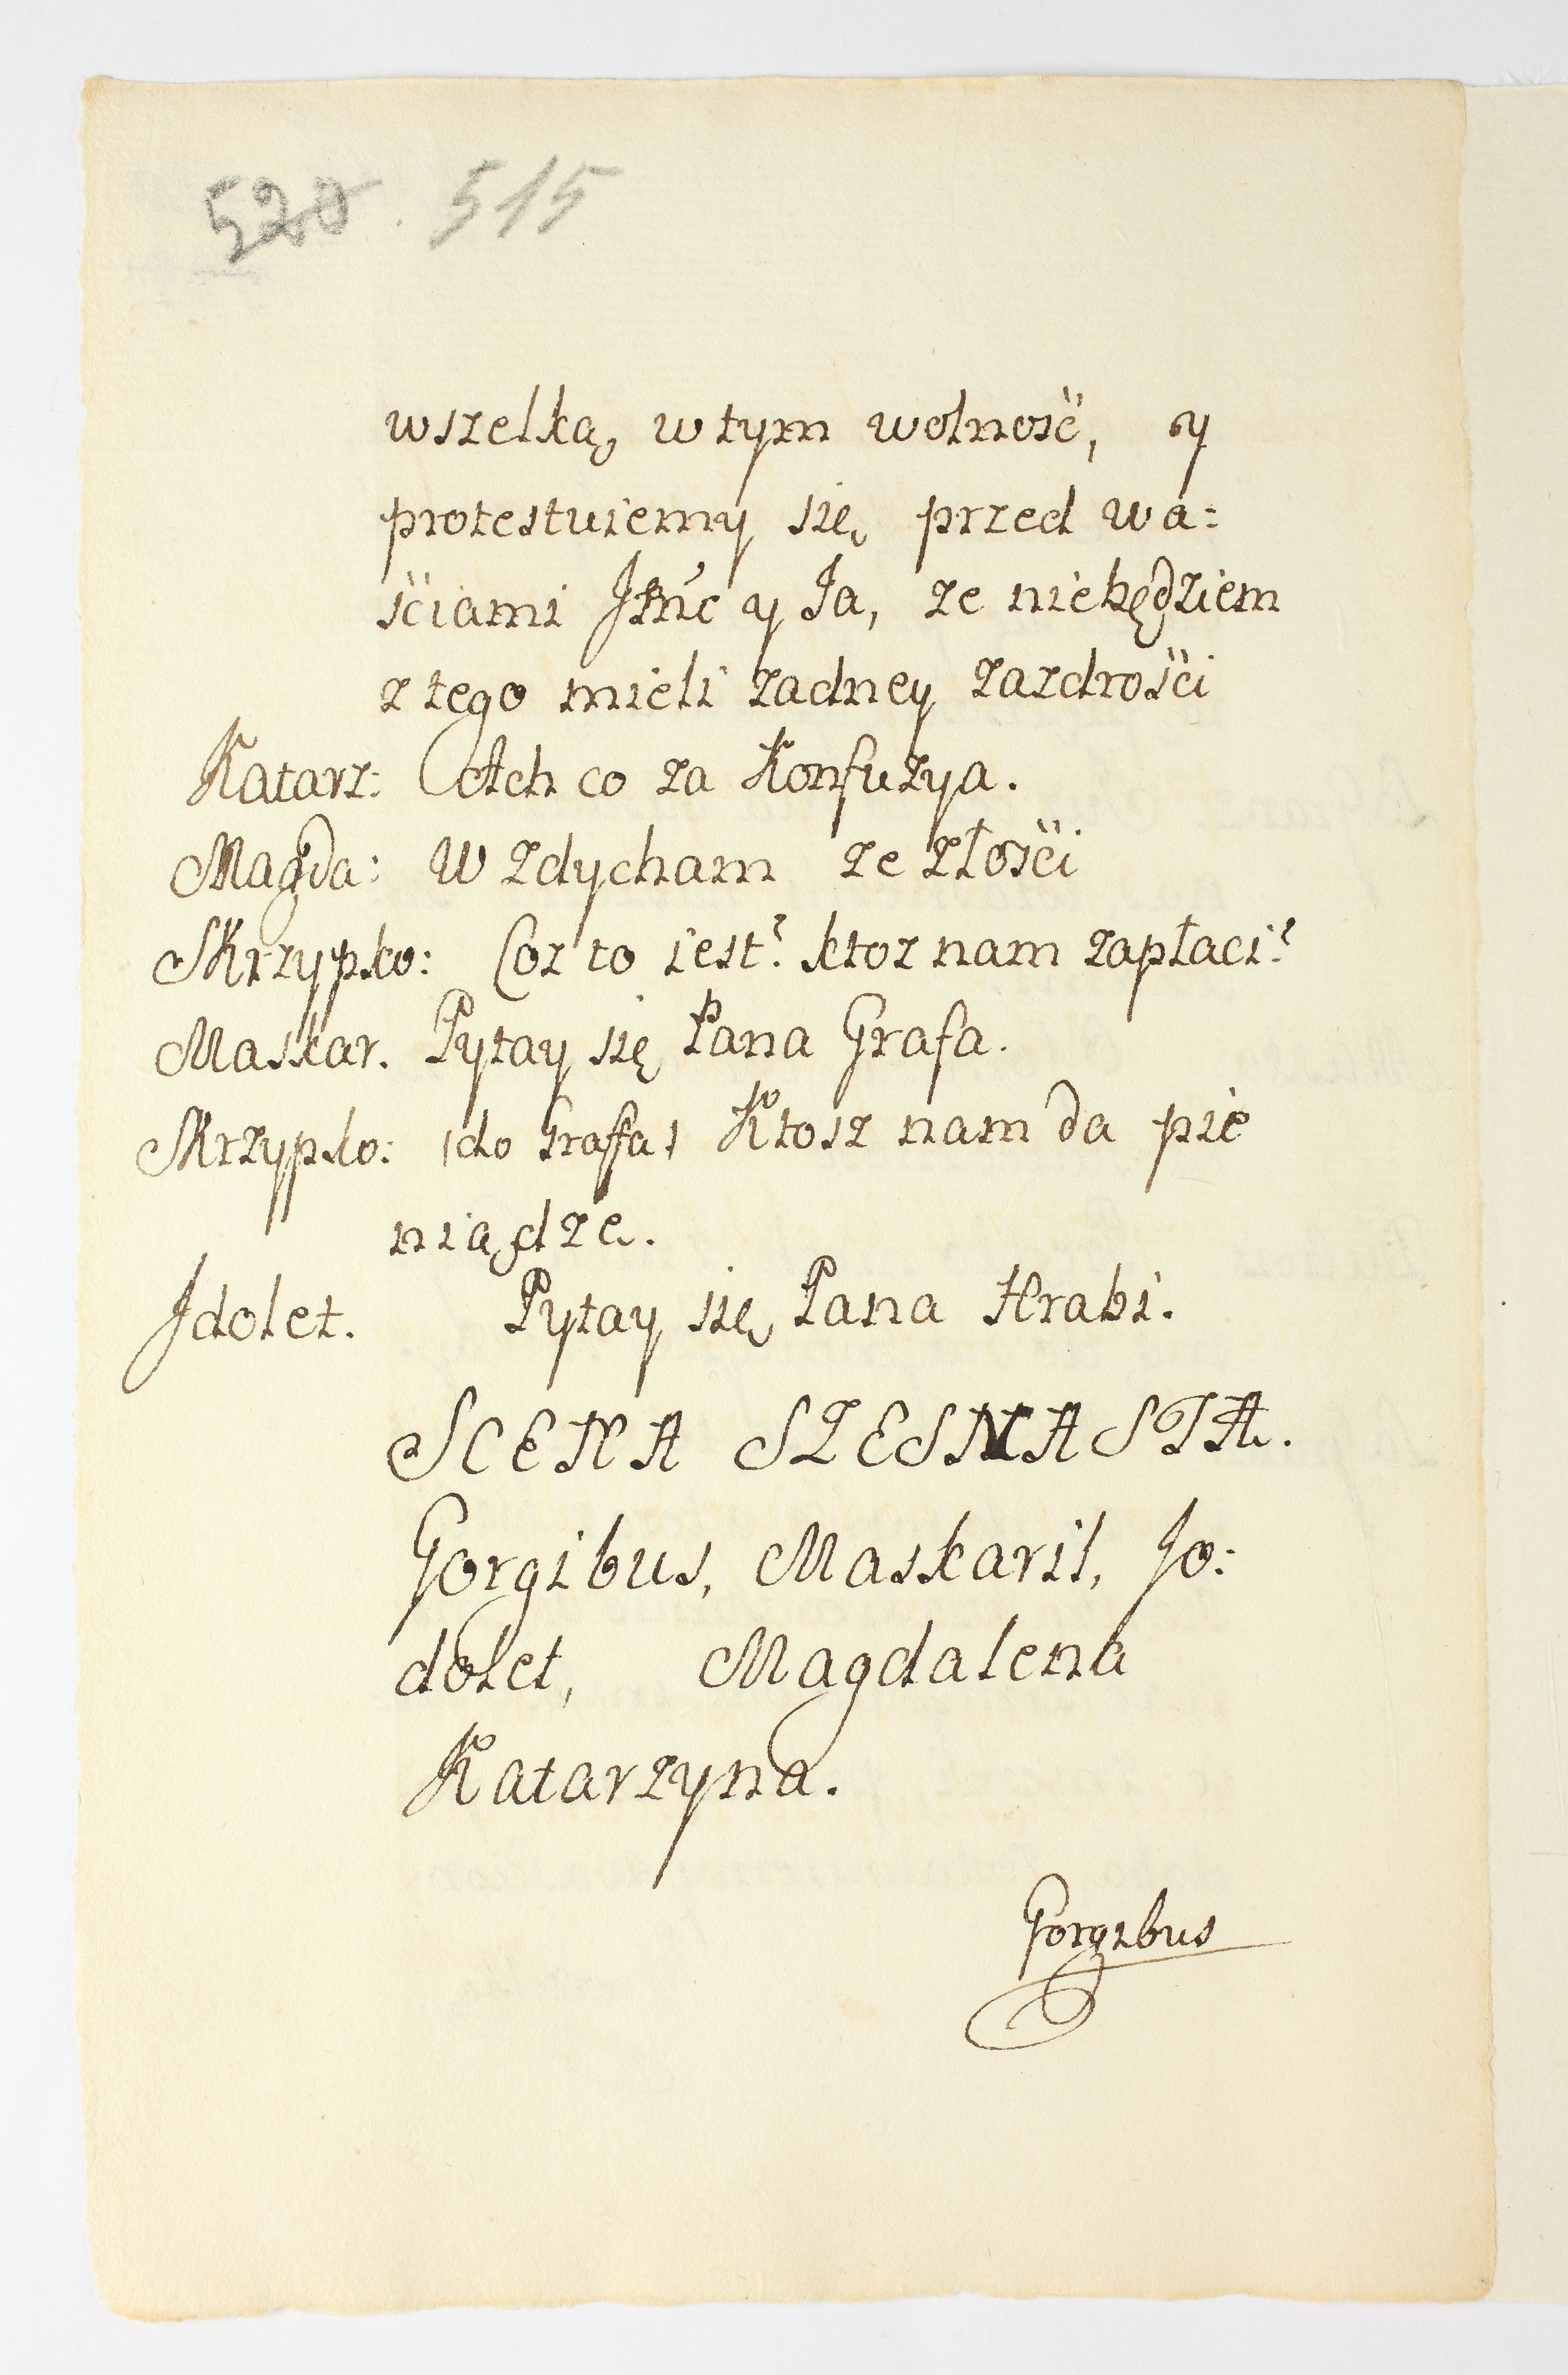 520. 515
wszelką w tym wolność, y
protestuiemy się przed wa:
ściami Jmć y Ja, ze niebędziem
z tego mieli zadney zazdrości
Katarz: Ach co za Konfuzya.
Magda: Wzdycham ze złości
Skrzypko: Coz to iest? ktoz nam zapłaci?
Maskar. Pytay się Pana Grafa.
Skrzypko: (do Graffa) Ktosz nam da pie
niądze.
Jdolet. Pytay się Pana Hrabi.
SCENA SZESNASTA.
Gorgibus, Maskaril, Jo:
dolet, Magdalena
Katarzyna.
Gorgibus